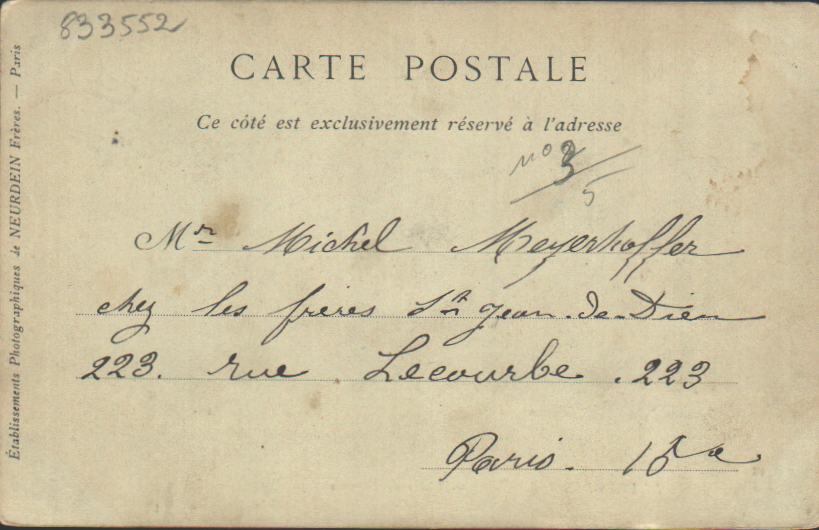 833552
CARTE POSTALE
Ce côté est exclusivement réservé à l'adresse
no 3/5
Mr Michel Meyerhoffer
chez les frères St Jean-de-Dieu
223. rue Lecourbe. 223
Paris. 15e
Établissements Photographiques de NEURDEIN Frères. — Paris